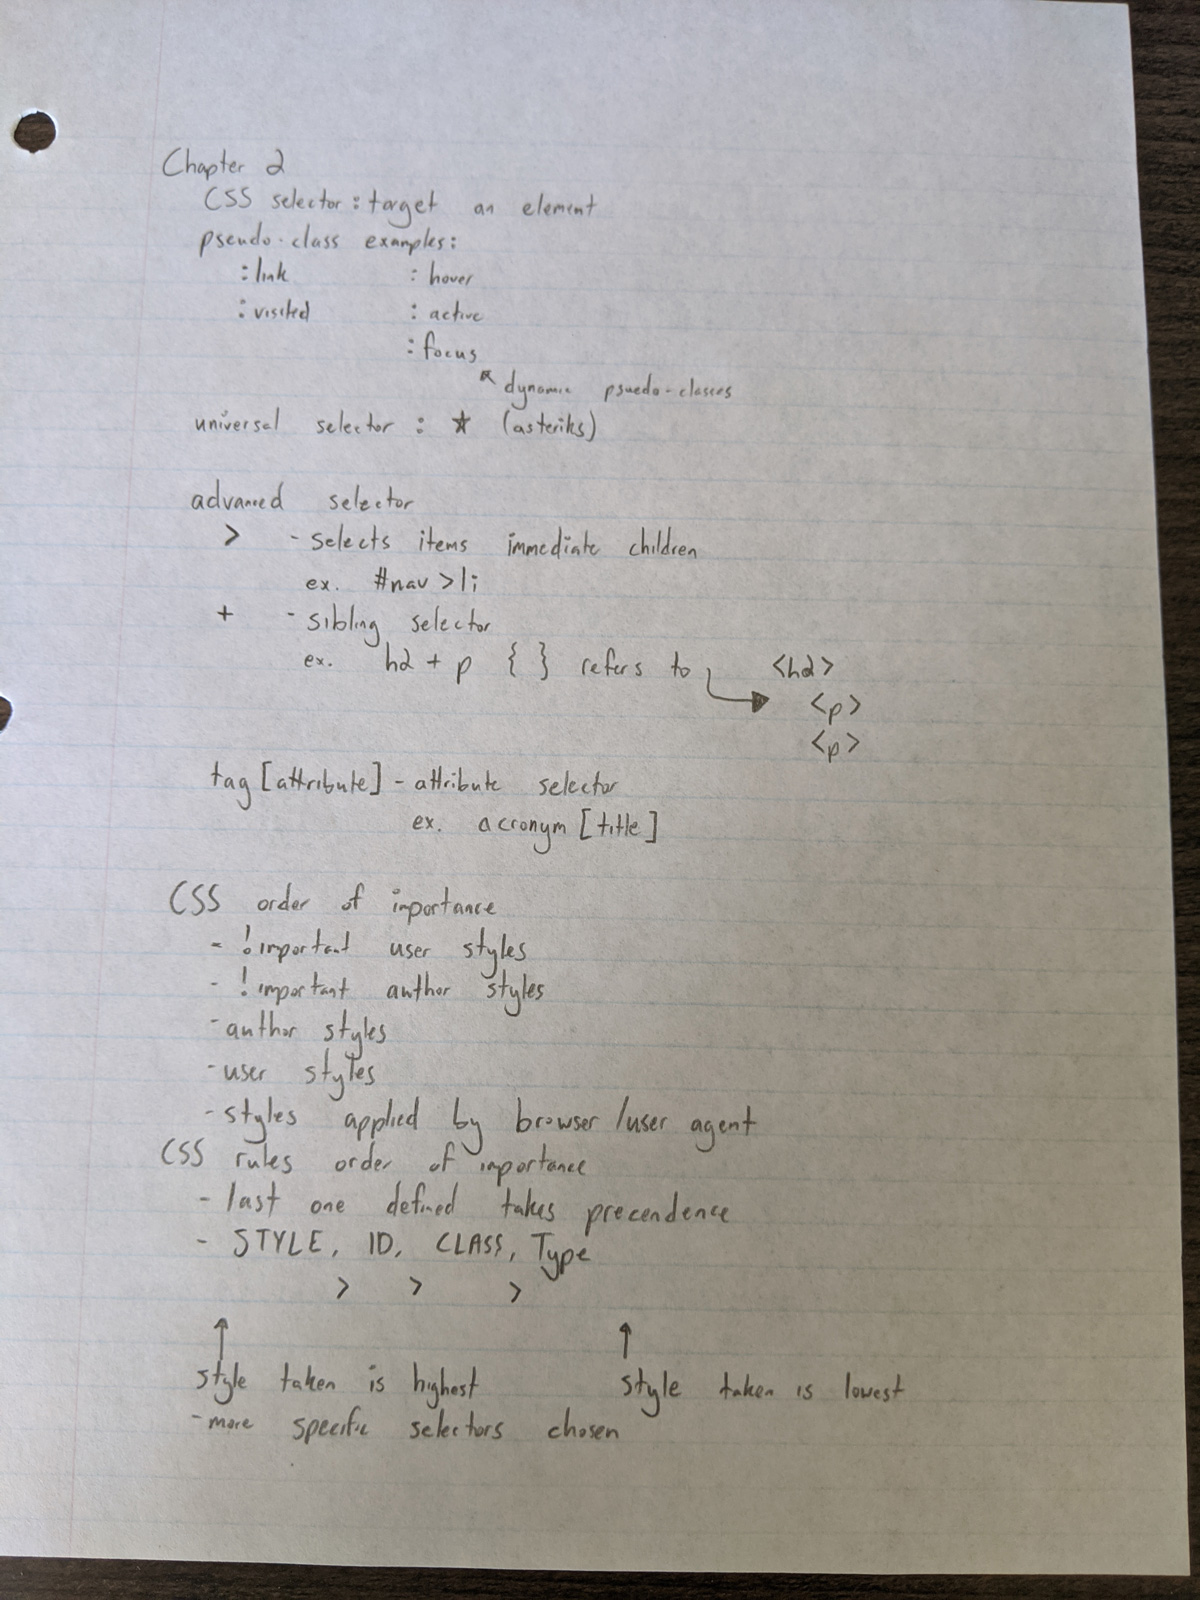 Chapter 2
CSS selector : target an element
pseudo-class examples:
:link :hover
:visited :active
:focus
dynamic psuedo-classes
universal selector : * (asteriks)
advanced selector
> - selects items immediate children
ex. #nav >li
+ - sibling selector
ex. h2 + p { } refers to <h2>
<p>
<p>
tag [attribute] - attribute selector
ex. acronym [title]
CSS order of importance
- !important user styles
- !important author styles
- author styles
- user styles
- styles applied by browser /user agent
CSS rules order of importance
- last one defined takes precendence
- STYLE, ID, CLASS, Type
> > >
style taken is highest style taken is lowest
- more specific selectors chosen